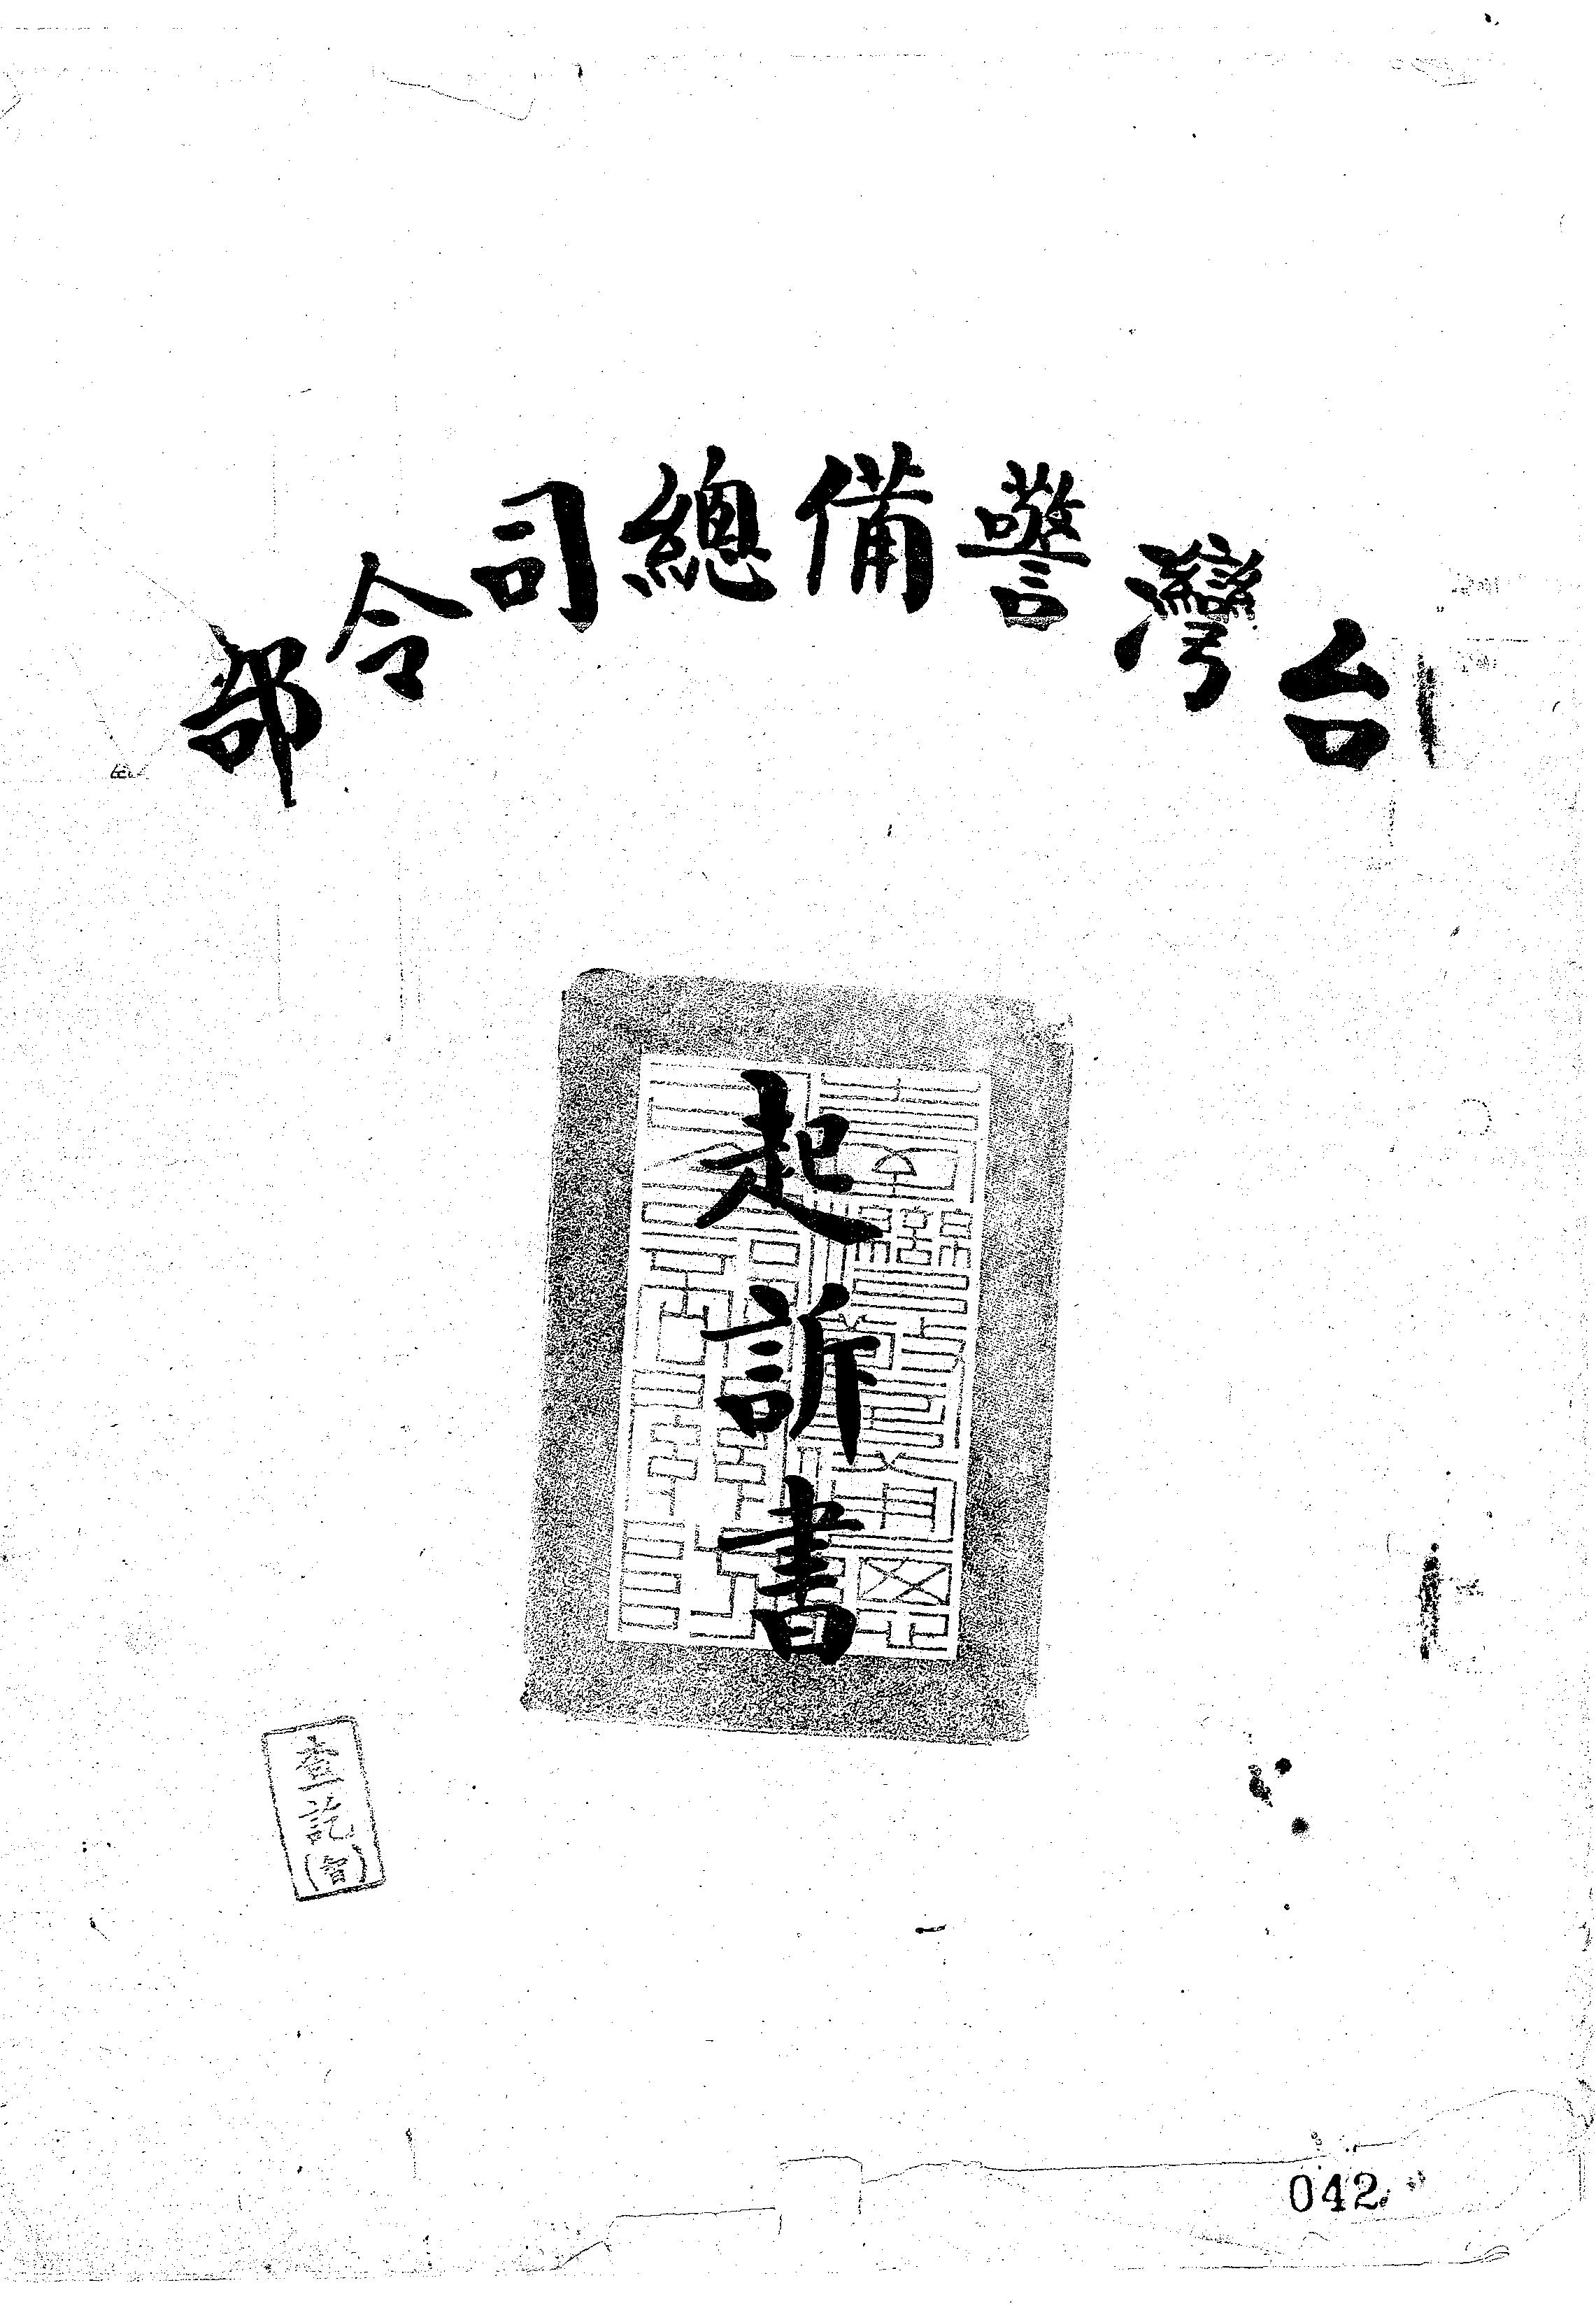 台灣警備總司令部
起訴書
查訖
042